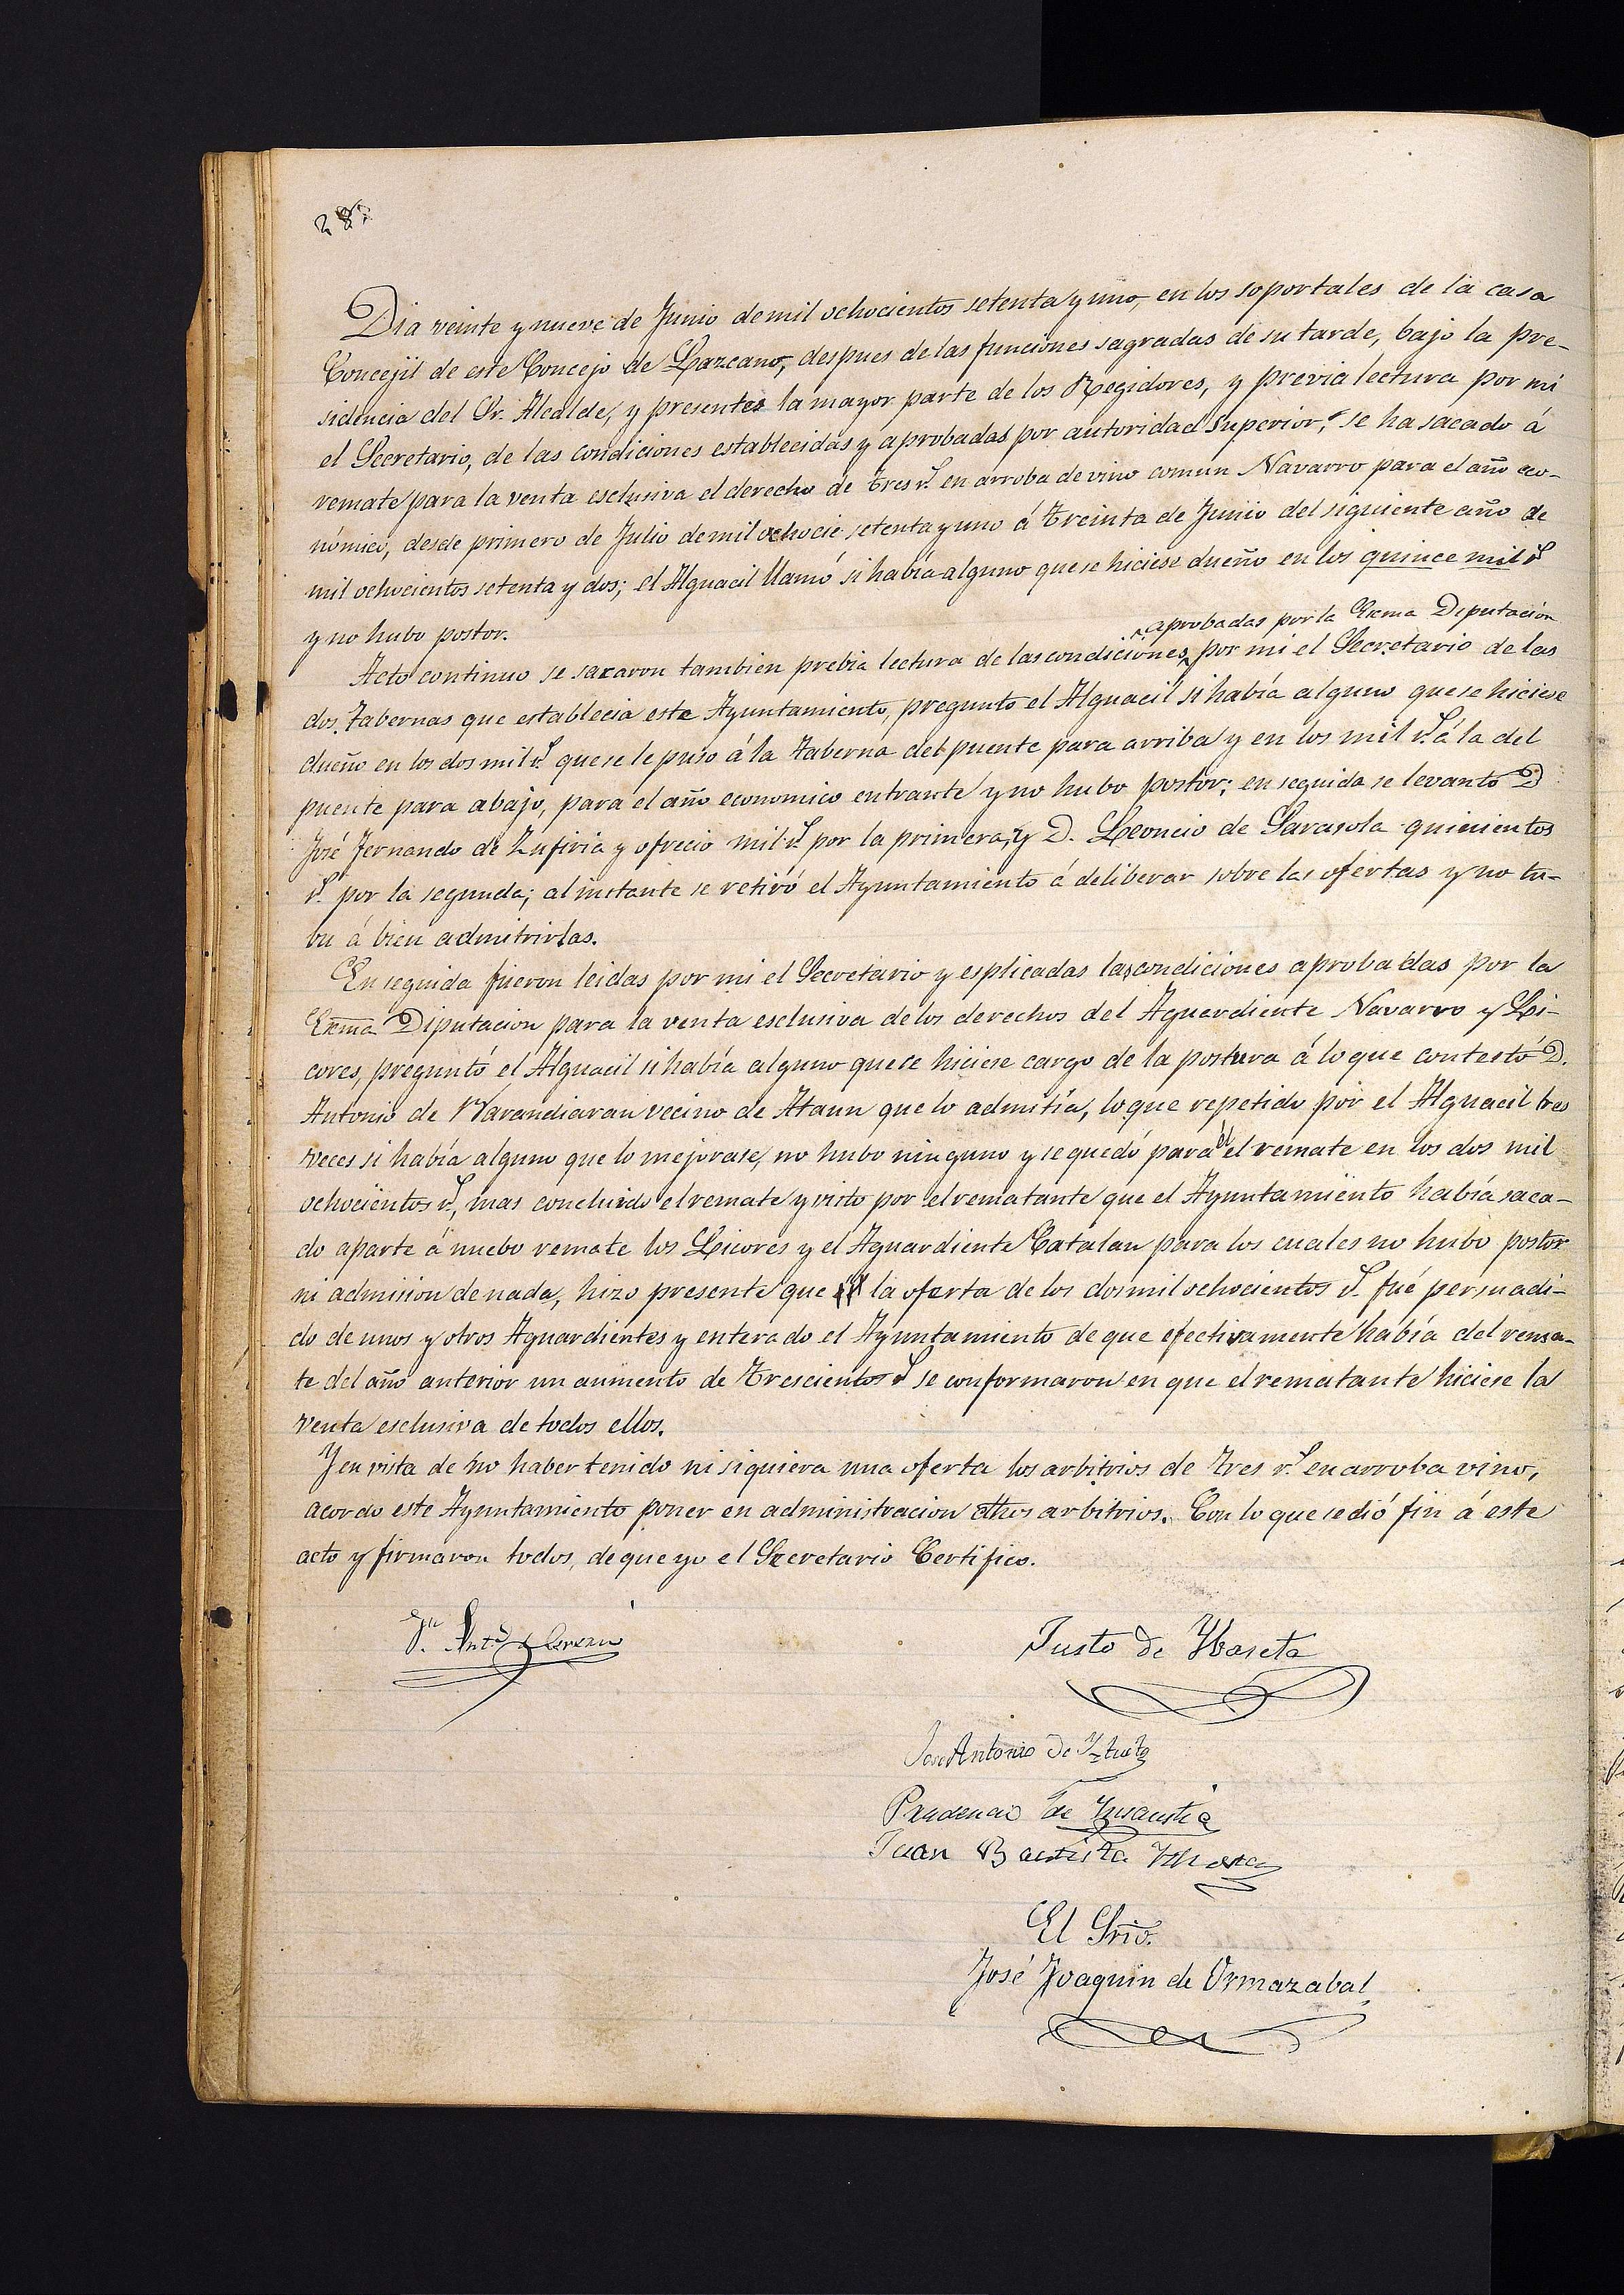 Dia veinte y nueve de Junio de mil ochocientos setenta y uno, en los soportales de la casa
Concejil de este Concejo de Lazcano, despues de las funciones sagradas de su tarde, bajo la pre-
sidencia del Sr. Alcalde, y presentes la mayor parte de los Regidores, y prévia léctura por mi
el Secretario, de las condiciones establecidas y aprobadas por autoridad Superior, se ha sacado á
remate para la venta esclusiva el derecho de tres r.s en arroba de vino comun Navarro para el año eco-
nómico, desde primero de Julio de mil ochocie setenta y uno á treinta de Junio del siguiente año de
mil ochocientos setenta y dos; el Alguacil llamó si había alguno que se hiciese dueño en los quince mil r.s
y no hubo postor.
aprobadas por la Exma Diputación
Acto continuo se sacaron tambien prebia lectura de las condiciones, por mi el Secretario de las
dos tabernas que establecia este Ayuntamiento, pregunto el Alguacil si había alguno que se hiciese
dueño en los dos mil r.s que se le puso á la taberna del puente para arriba y en los mil r.s á la del
puente para abajo, para el año economico entrante y no hubo postor; en seguida se levanto D
José Fernando de Zufiria y ofrecio mil r.s por la primera, y D. Leoncio de Sarasola quinientos
r.s por la segunda; al instante se retiró el Ayuntamiento á deliberar sobre las ofertas y no tu-
bu á bien admitrirlas.
En seguida fueron leidas por mi el Secretario y esplicadas las condiciones aprobadas por la
Exma Diputacion para la venta esclusiva de los derechos del Aguardiente Navarro y Li-
cores, preguntó el Alguacil si había alguno que se hiciese cargo de la postura á lo que contestó D.
Antonio de Barandiaran vecino de Ataun que lo admitía, lo que repetido por el Alguacil tres
veces si había alguno que lo mejorase, no hubo ninguno y se quedó para el el remate en los dos mil
ochocientos r.s, mas concluido el remate y visto por el rematante que el Ayuntamiento había saca-
do aparte á nuebo remate los Licores y el Aguardiente Catalan para los cuales no hubo postor
ni admision de nada, hizo presente que la oferta de los dos mil ochocientos r.s fué persuadi-
do de unos y otros Aguardientes y enterado el Ayuntamiento de que efectivamente había del rema-
te del año anterior un aumento de trescientos r.s se conformaron en que el rematante hiciese la
venta esclusiva de todos ellos.
Y en vista de no haber tenido ni siquiera una oferta los arbitrios de tres r.s en arroba vino,
acordo este Ayuntamiento poner en administracion dhos arbitrios. Con lo que se dió fin á este
acto y firmaron todos, de que yo el Secretario Certifico.
Jn Ant.o
Justo de Ybaseta
José Antonio de
Prudencio de Ynsausti
Juan Bautista
El Srio.
José Joaquin de Ormazabal